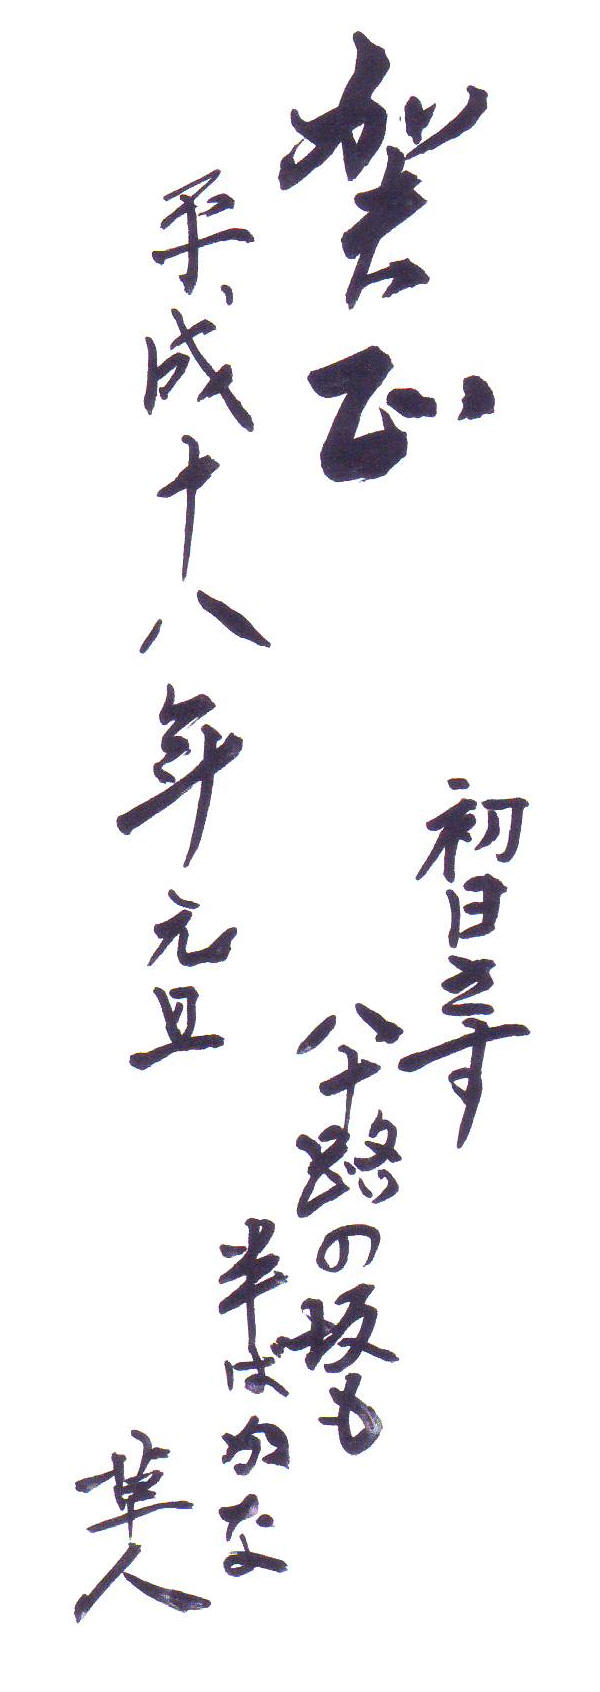 賀正
初日さす
八十路の坂も
半ばかな
草人
平成十八年元旦